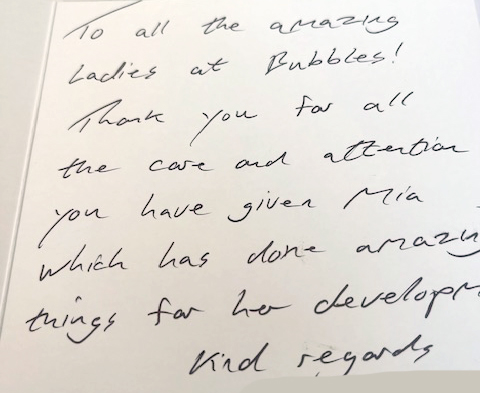 To all the amazing
Ladies at Bubbles!
Thank you for all
the care and attention
you have given Mia
which has done amazing
things for her developm
Kind regards